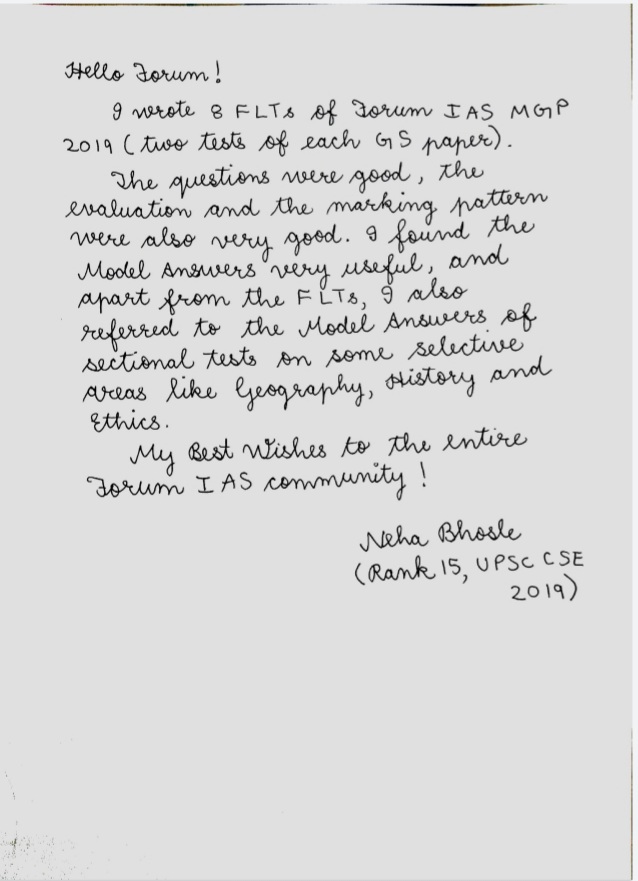 Hello Forum!
I wrote 8 FLTs of Forum IAS MGP
2019 (two tests of each GS paper).
The questions were good, the
evaluation and the marking pattern
were also very good. I found the
Model Answers very useful, and
apart from the FLTs, I also
referred to the Model Answers of
sectional tests on some selective
areas like Geography, History and
Ethics.
My Best Wishes to the entire
Forum IAS community!
Neha Bhosle
(Rank 15, UPSC CSE
2019)